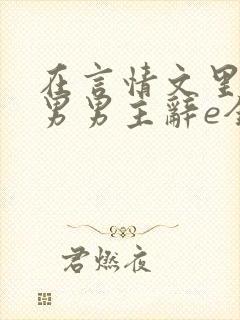 在言情文里
男男主辞e全
君燃夜